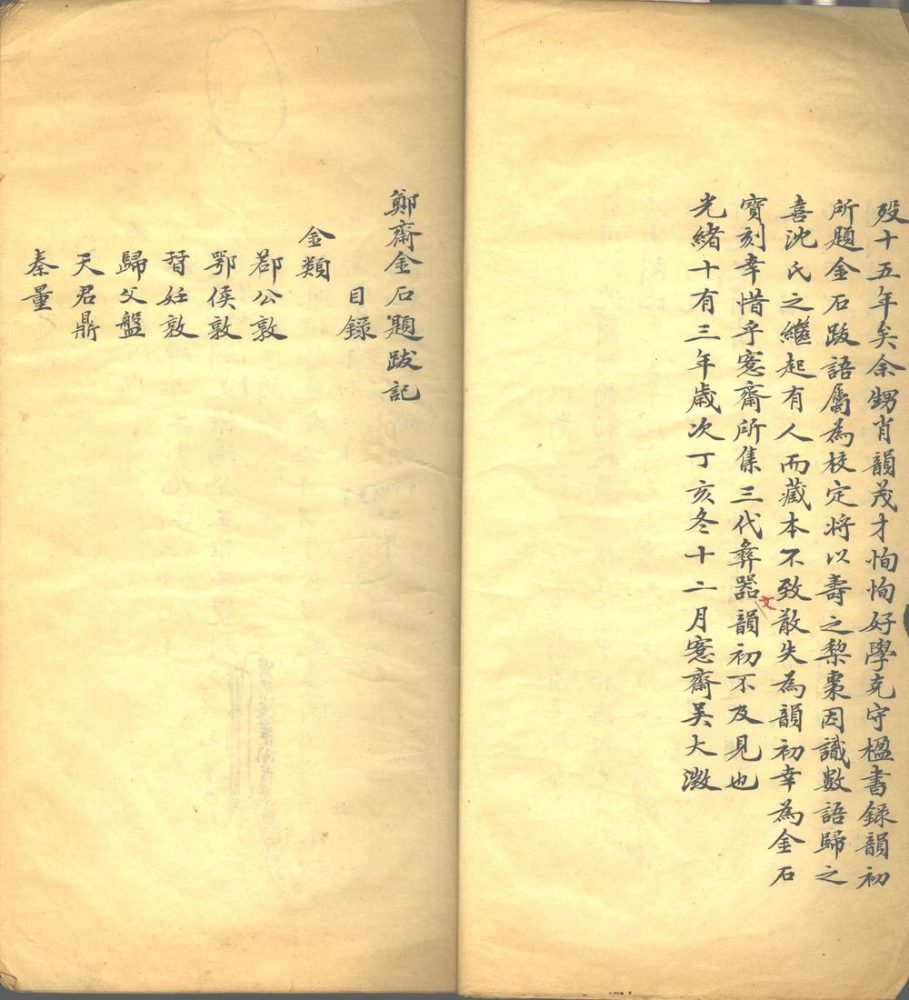 歿十五年矣余甥肖韻茂才恂恂好學克守楹書錄韻初
所題金石跋語屬為校定將以壽之棃棗因識數語歸之
喜沈氏之繼起有人而藏本不致散失為韻初幸為金石
寶刻幸惜乎愙齋所集三代彝器文韻初不及見也
光緒十有三年歲次丁亥冬十二月愙齋吴大澂
鄭齋金石題跋記
目錄
金類
鄀公敦
鄂侯敦
䀠妊敦
歸父盤
天君鼎
秦量